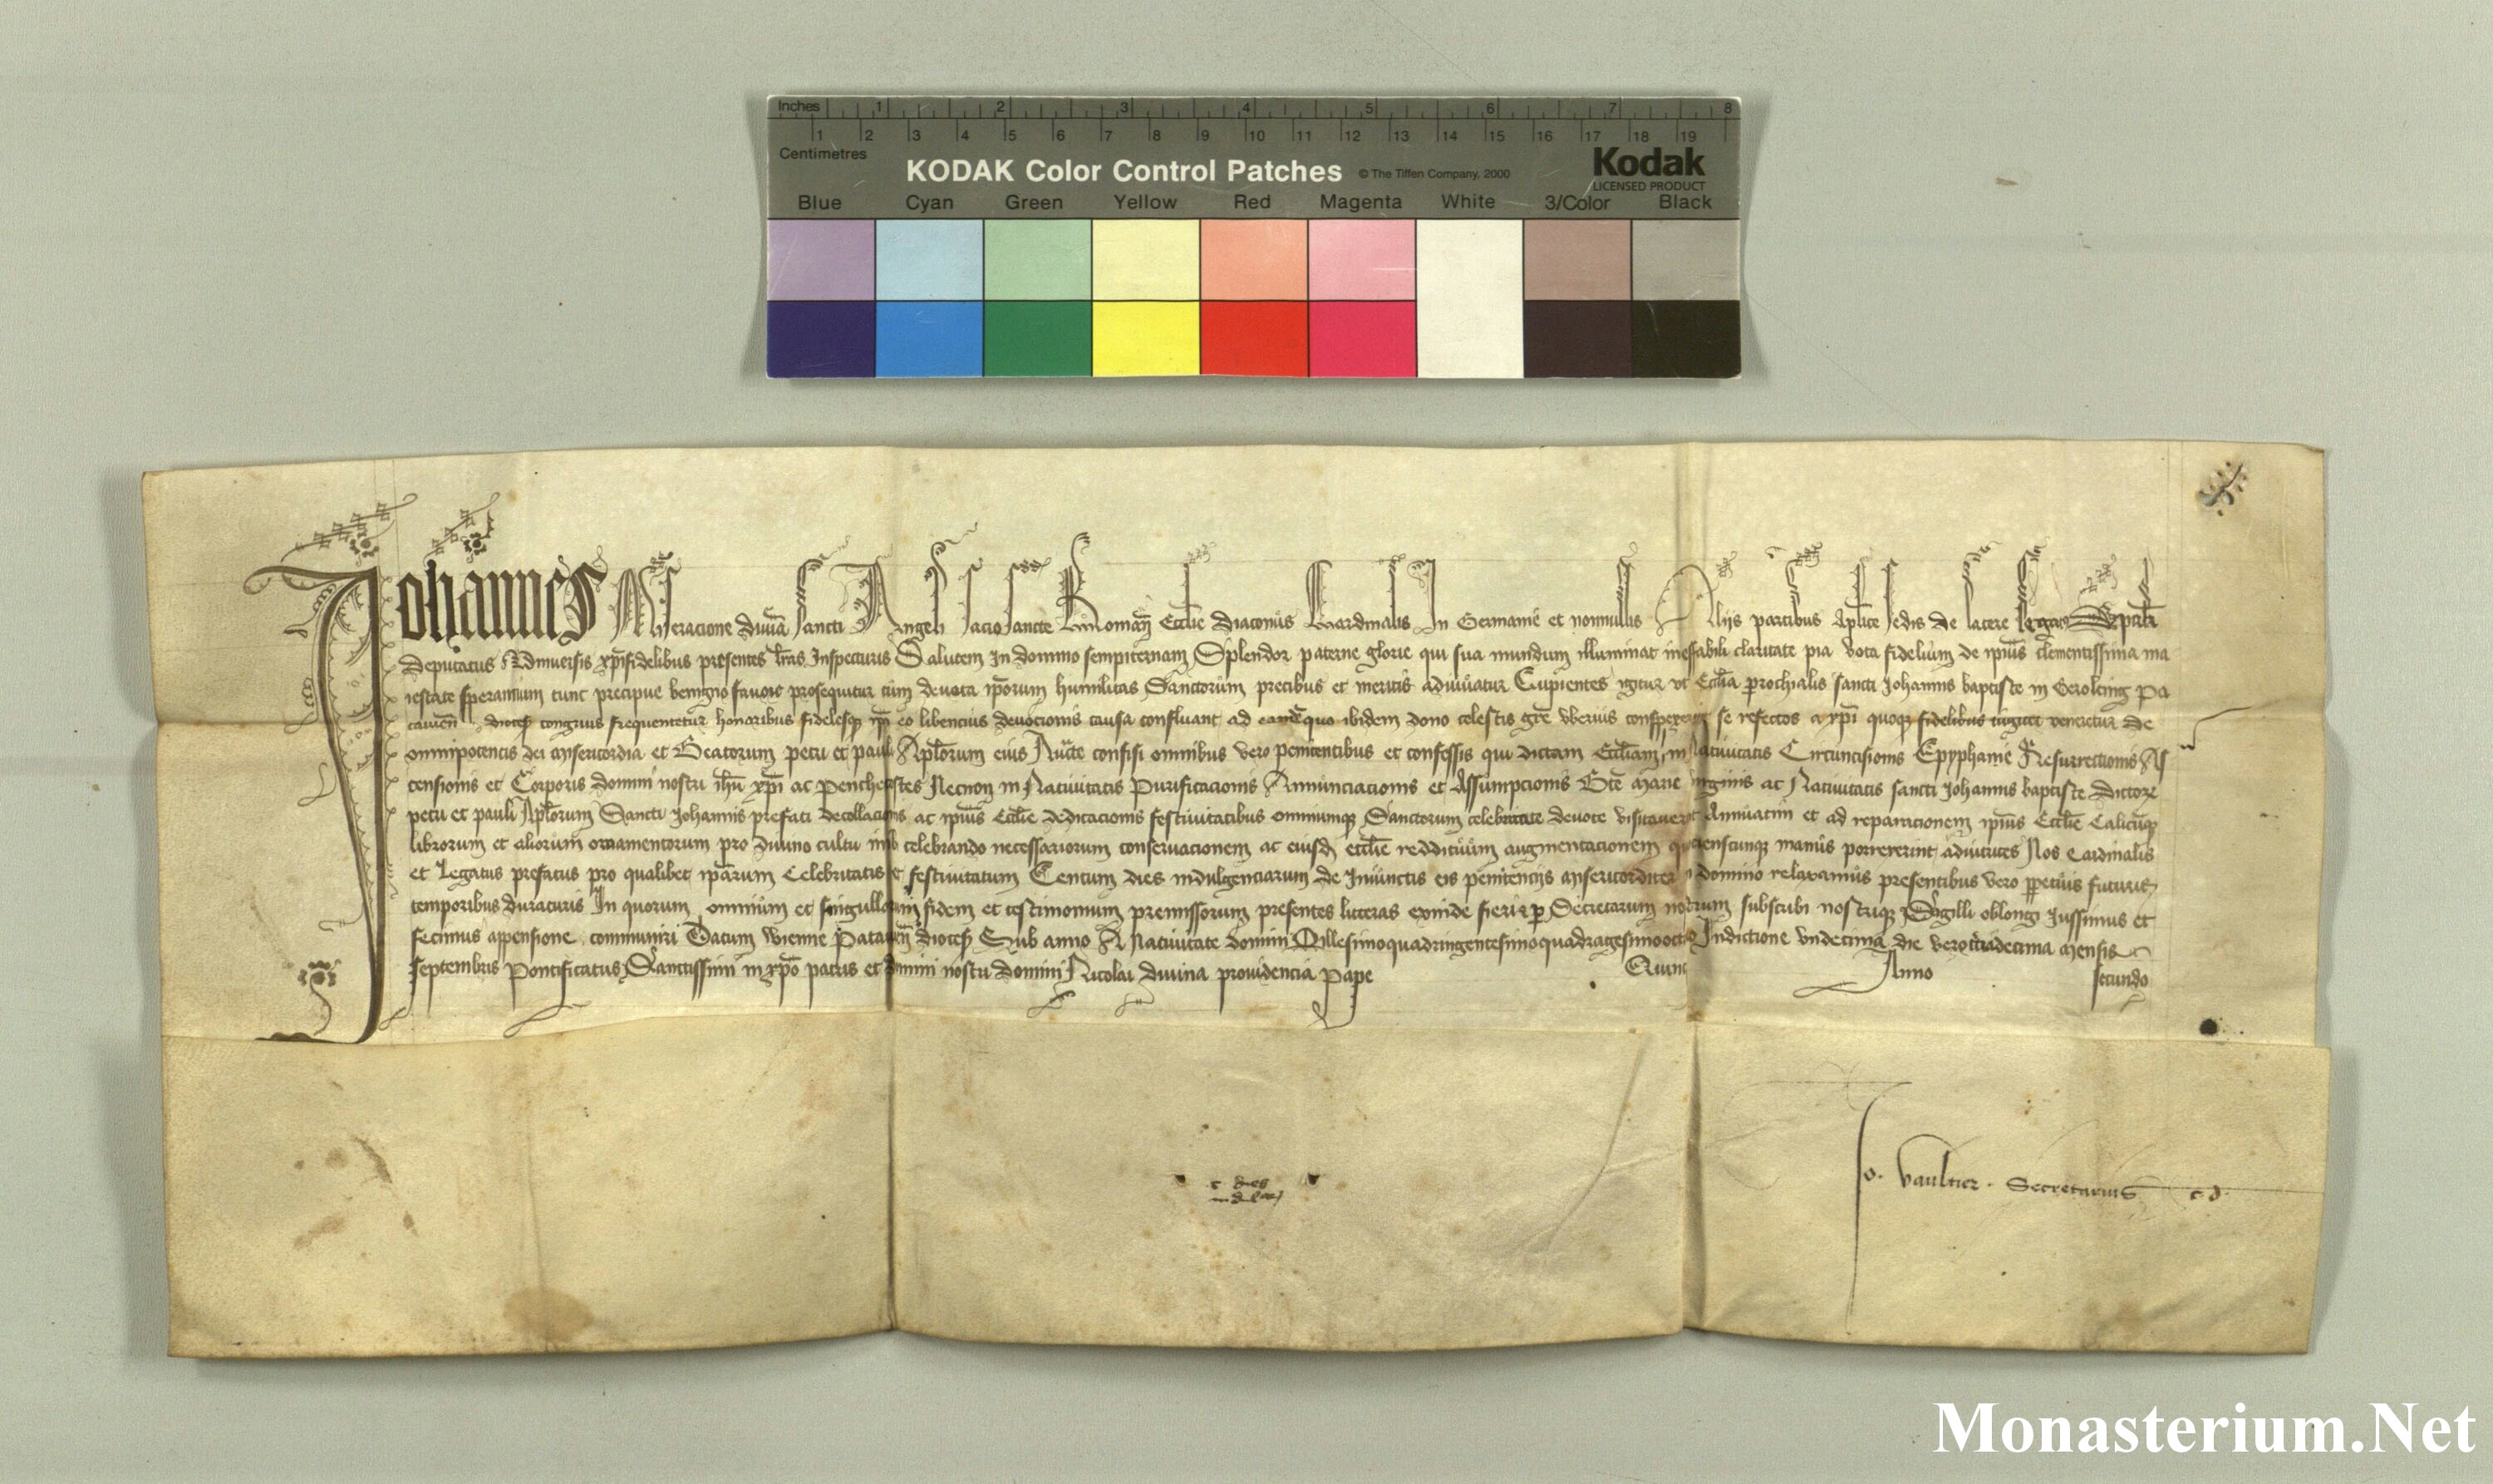 Inches 1 2 3 4 5 6 7 8
1 2 3 4 5 6 7 8 9 10 11 12 13 14 15 16 17 18 19
Centimetres
KODAK Color Control Patches © The Tiffen Company, 2000 Kodak
LICENSED PRODUCT
Blue Cyan Green Yellow Red Magenta White 3/Color Black
Johannes Miseracione diuīa sancti Angeli sacrosancte Romañ Eccl̄ie diaconus Cardinalis In Germanie et nonnullis Alijs partibus aplīce sedis de latere legatus
deputatus Vniuersis xp̄ifidelibus presentes lr̄as Inspecturis Salutem In domino sempiternam Splendor paterne glorie qui sua mundum illuminat ineffabili claritate pia vota fidelium de ip̄ius clementissima ma
iestate sperantium tunc precipue benigno fauore prosequitur cum deuota ip̄orum humilitas Sanctorum precibus et meritis adiuuatur Cupientes igitur vt Eccl̄ia parochialis sancti Johannis baptiste in Gerolting Pa
tauieñ dioces̄ congruis frequentetur honoribus fidelesq̄ ip̄i eo libencius deuocionis causa confluant ad eandē quo ibidem dono celestis gr̄e vberius conspexerint se refectos a xp̄i quoq̄ fidelibus iugiter veneretur de
omnipotentis dei misericordia et Beatorum petri et pauli Apl̄orum eius Auct̄e confisi omnibus vero penitentibus et confessis qui dictam Eccl̄iam in Natiuitatis Circuncisionis Epyphanie Resurrectionis As
censionis et Corporis domini nostri ih̄u xp̄i ac Penthecostes Necnon in Natiuitatis Purificacionis Annunciacionis et Assumpcionis Bt̄e marie virginis ac Natiuitatis sancti Johannis baptiste dictorū
petri et pauli Apl̄orum Sancti Johannis prefati decollacionis ac ip̄ius Eccl̄ie dedicacionis festiuitatibus omniumq̄ Sanctorum celebritate deuote visitauerint Annuatim et ad reparacionem ip̄ius Eccl̄ie Calicūq̄
librorum et aliorum ornamentorum pro diuino cultu inibi celebrando necessariorum conseruacionem ac eiusd̄ eccl̄ie reddituum augmentacionem quocienscunq̄ manus porrexerint adiutrices Nos Cardinalis
et Legatus prefatus pro qualibet ip̄arum Celebritatis et festiuitatum Centum dies indulgenciarum de Iniunctis eis penitencijs misericorditer in domino relaxamus presentibus vero ꝑpetuis futuris
temporibus duraturis In quorum omnium et singulorum fidem et testimonium premissorum presentes litteras exinde fieri et ꝑ Secretarum nostrum subscribi nostriq̄ Sigilli oblongi Iussimus et
fecimus appensione communiri Datum wienne Patauieñ dioces̄ Sub anno A Natiuitate domini Millesimoquadringentesimoquadragesimooctauo Indictione vndecima die vero terciadecima mensis
septembris Pontificatus Sanctissimi in xp̄o patris et domini nostri domini Nicolai diuina prouidencia Pape Quinti Anno secundo
c dies
Jo. Vaultier. Secretarius c. d.
Monasterium.Net